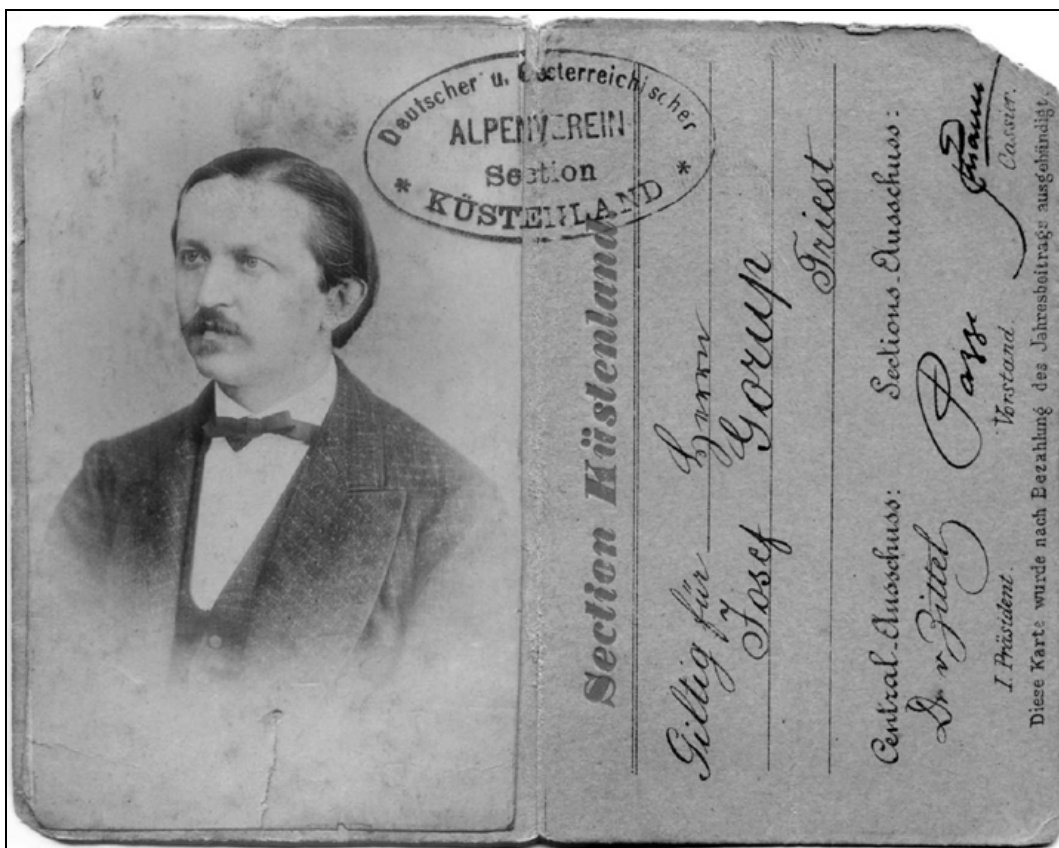 Deutscher u. Oesterreichischer
ALPENVEREIN
Section
* KÜSTENLAND *
Section Küstenland
Giltig für Herrn
Josef Gorup
Triest
Central-Ausschuss: Sections-Ausschuss:
Dr v Zittel Pazze
I. Präsident. Vorstand. Cassier.
Diese Karte wurde nach Bezahlung des Jahresbeitrags ausgehändigt.